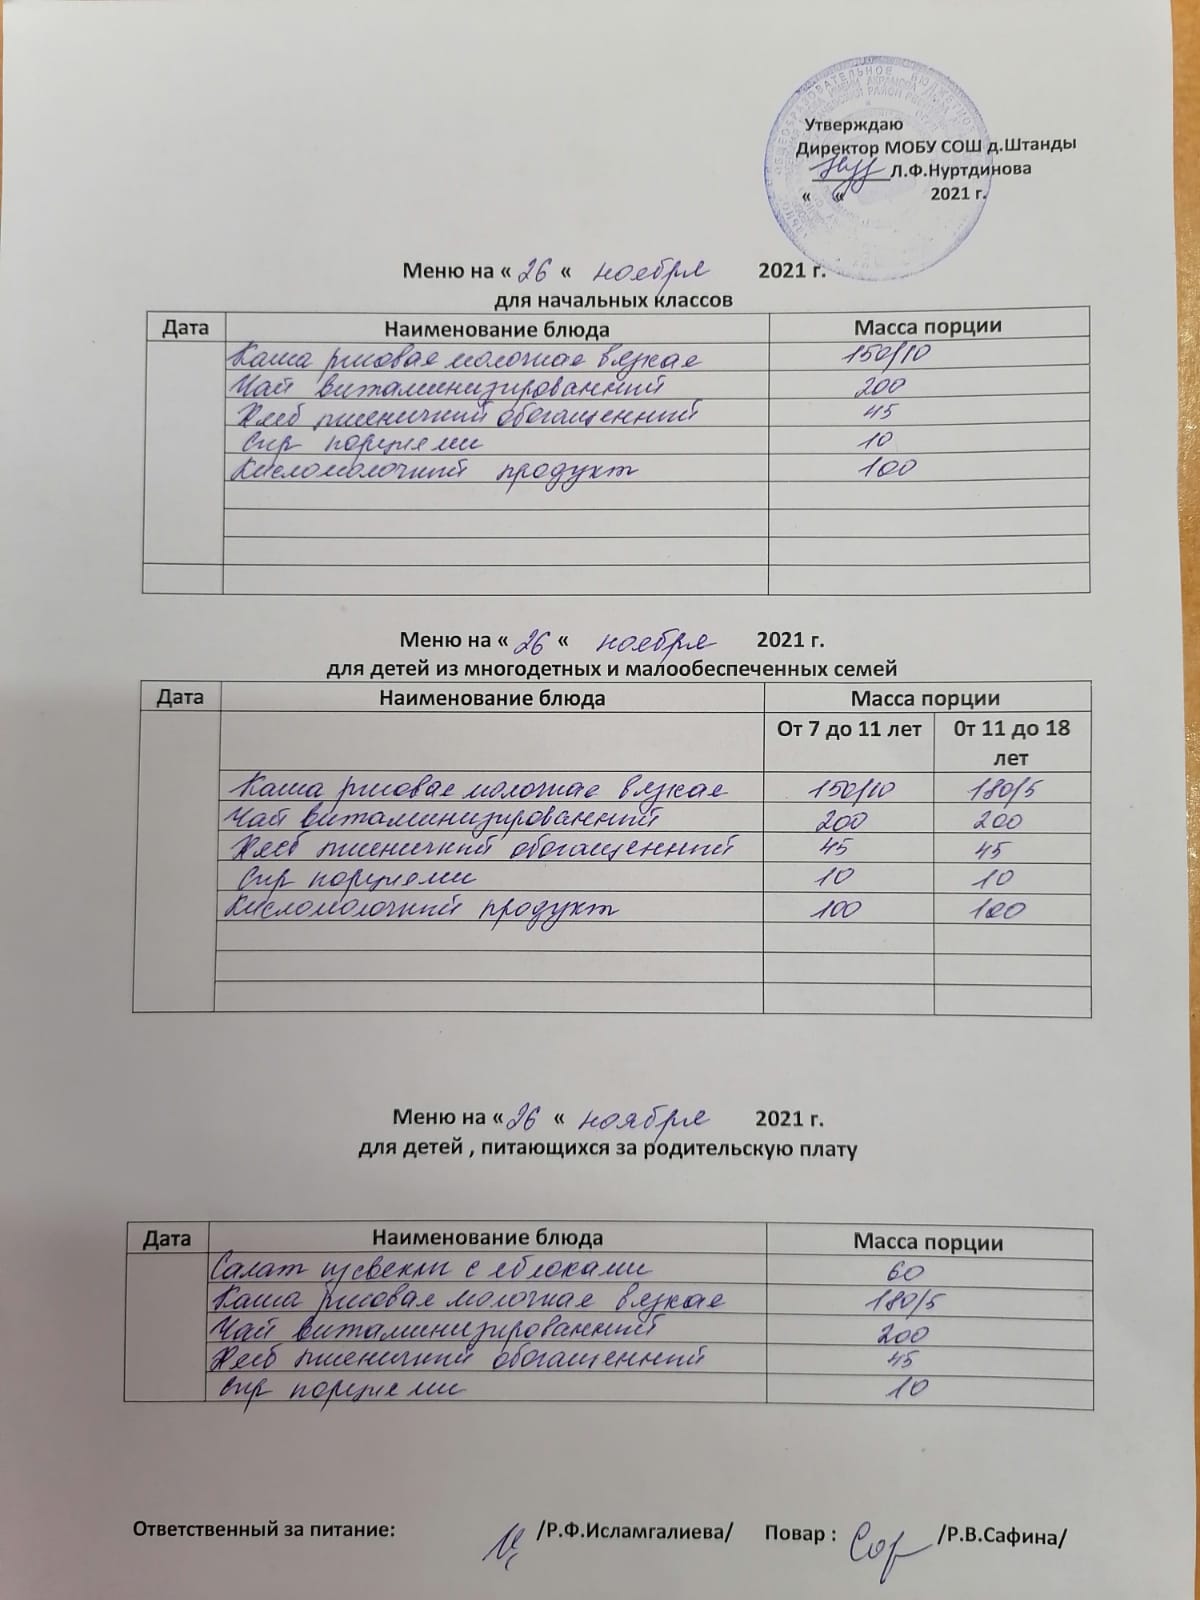 ОБЩЕОБРАЗОВАТЕЛЬНОЕ БЮДЖЕТНОЕ
Утверждаю
Директор МОБУ СОШ д.Штанды
Л.Ф.Нуртдинова
« « 2021 г.
Меню на « 26 « ноября 2021 г.
для начальных классов
Дата Наименование блюда Масса порции
Каша рисовая молочная вязкая 150/10
Чай витаминизированный 200
Хлеб пшеничный обогащенный 45
Сыр порциями 10
Кисломолочный продукт 100
Меню на « 26 « ноября 2021 г.
для детей из многодетных и малообеспеченных семей
Дата Наименование блюда Масса порции
От 7 до 11 лет 0т 11 до 18 лет
Каша рисовая молочная вязкая 150/10 180/5
Чай витаминизированный 200 200
Хлеб пшеничный обогащенный 45 45
Сыр порциями 10 10
Кисломолочный продукт 100 100
Меню на « 26 « ноября 2021 г.
для детей , питающихся за родительскую плату
Дата Наименование блюда Масса порции
Салат из свеклы с яблоками 60
Каша рисовая молочная вязкая 180/5
Чай витаминизированный 200
Хлеб пшеничный обогащенный 45
Сыр порциями 10
Ответственный за питание: /Р.Ф.Исламгалиева/ Повар : /Р.В.Сафина/